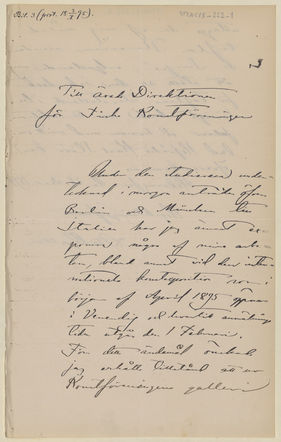 Bil. 3 (prot. 18 2/2 95).
Till ärade Direktionen
för Finska Konstföreningen
Under den italienska
i morgon anträda öfver
Berlin och München till
Italien har jag ämnat
några af mina arbe-
ten, bland annat vid den inter-
nationela som i
början af April 1895 öppnas
i Venedig och hvartill anmälnings
tiden utgår den 1 Februari.
För detta ändamål önskade
jag erhålla tillstånd att ur
Konstföreningens galleri